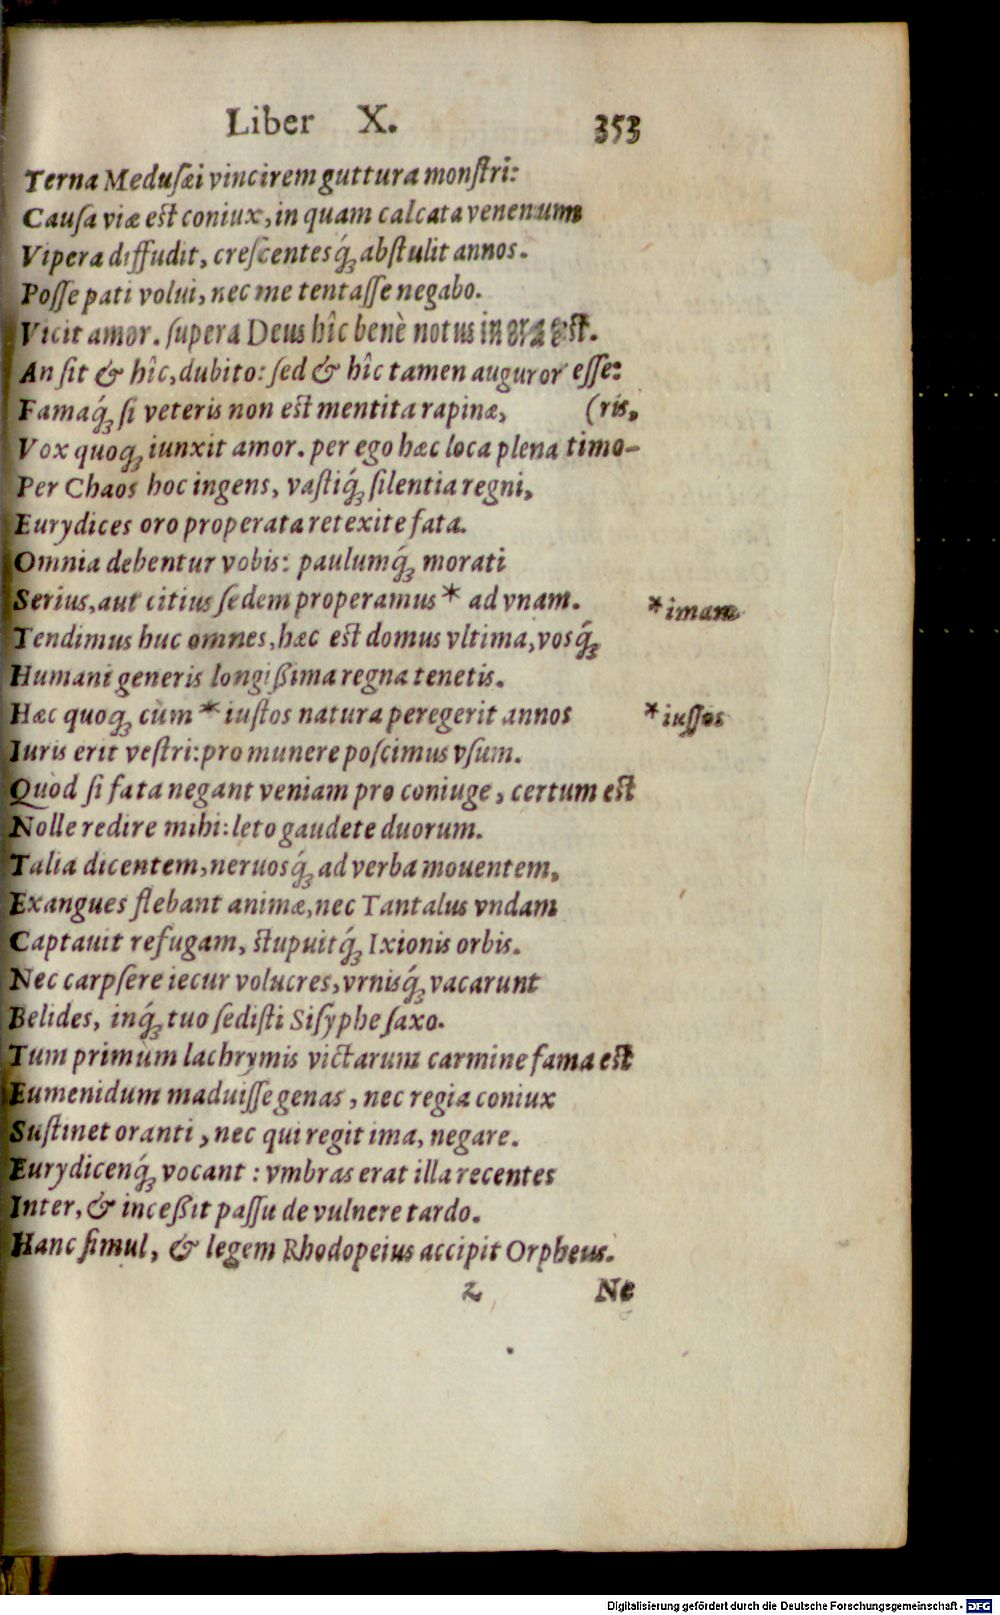 Liber X. 353
Terna Medusæi vincirem guttura monſtri:
Cauſa viæ eſt coniux, in quam calcata venenum
Vipera diffudit, creſcentesq́ꝫ abſtulit annos.
Poſſe pati volui, nec me tentaſſe negabo.
Vicit amor. ſupera Deus hîc benè notus in ora eſt.
An ſit & hîc, dubito: ſed & hîc tamen auguror eſſe:
Famaq́ꝫ ſi veteris non eſt mentita rapinæ, (ris,
Vox quoqꝫ iunxit amor. per ego hæc loca plena timo-
Per Chaos hoc ingens, vaſtiq́ꝫ ſilentia regni,
Eurydices oro properata retexite fata.
Omnia debentur vobis: paulumq́ꝫ morati
Serius, aut citius ſedem properamus * ad vnam. *imam
Tendimus huc omnes, hæc eſt domus vltima, vosq́ꝫ
Humani generis longißima regna tenetis.
Hæc quoqꝫ cùm * iuſtos natura peregerit annos *iuſſos
Iuris erit veſtri: pro munere poſcimus vſum.
Quòd ſi fata negant veniam pro coniuge, certum eſt
Nolle redire mihi: leto gaudete duorum.
Talia dicentem, neruosq́ꝫ ad verba mouentem,
Exangues flebant animæ, nec Tantalus vndam
Captauit refugam, ſtupuitq́ꝫ Ixionis orbis.
Nec carpſere iecur volucres, vrnisq́ꝫ vacarunt
Belides, inq́ꝫ tuo ſediſti Siſyphe ſaxo.
Tum primùm lachrymis victarum carmine fama eſt
Eumenidum maduiſſe genas, nec regia coniux
Suſtinet oranti, nec qui regit ima, negare.
Eurydicenq́ꝫ vocant: vmbras erat illa recentes
Inter, & inceßit paſſu de vulnere tardo.
Hanc ſimul, & legem Rhodopeius accipit Orpheus.
z Ne
Digitalisierung gefördert durch die Deutsche Forschungsgemeinschaft - DFG